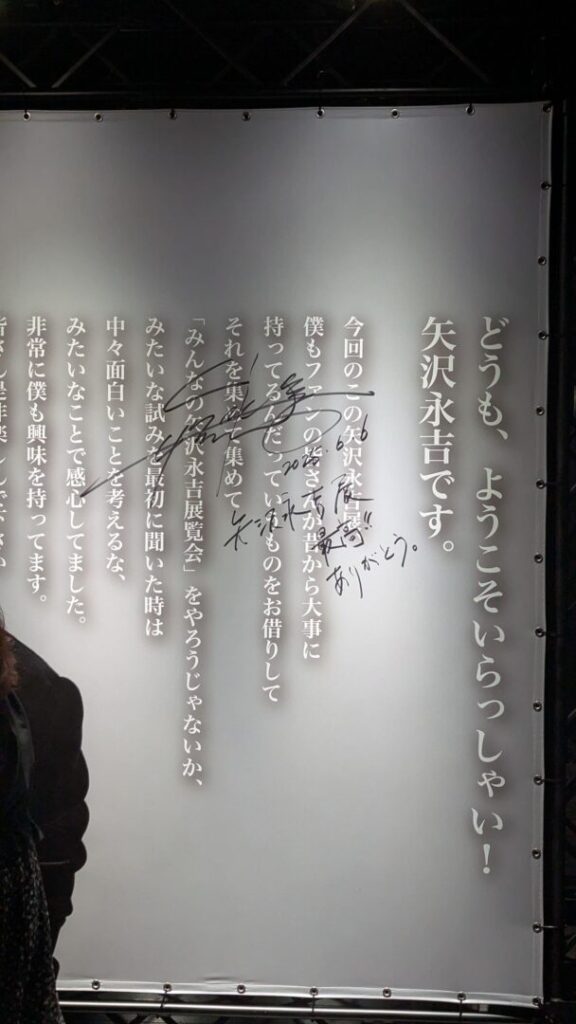 どうも、ようこそいらっしゃい！
矢沢永吉です。
今回のこの矢沢永吉展
僕もファンの皆さんが昔から大事に
持ってるんだっていものをお借りして
それを集めて集めて
「みんなの矢沢永吉展覧会」をやろうじゃないか、
みたいな試みを最初に聞いた時は
中々面白いことを考えるな、
みたいなことで感心してました。
非常に僕も興味を持ってます。
皆さん是非楽しんで下さい
6.6
矢沢永吉展
最高!!
ありがとう。